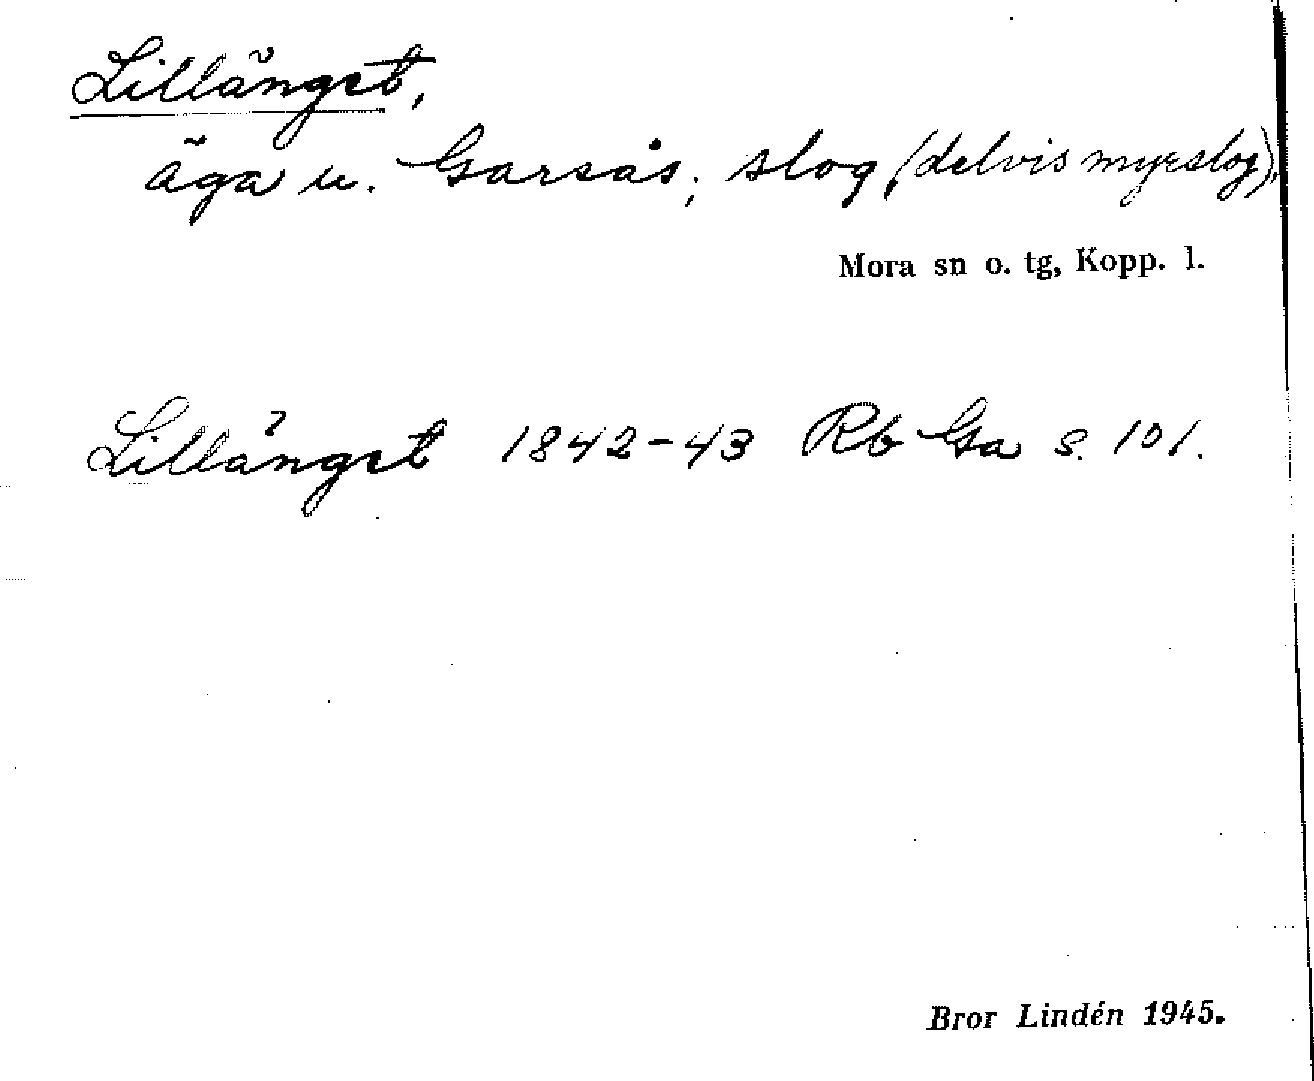 Lillänget,
äga u. Garsås; slog (delvis myrslog).
Mora sn o. tg, Kopp. l.
Lillänget 1842-43 Rb Ga s. 101.
Bror Lindén 1945.